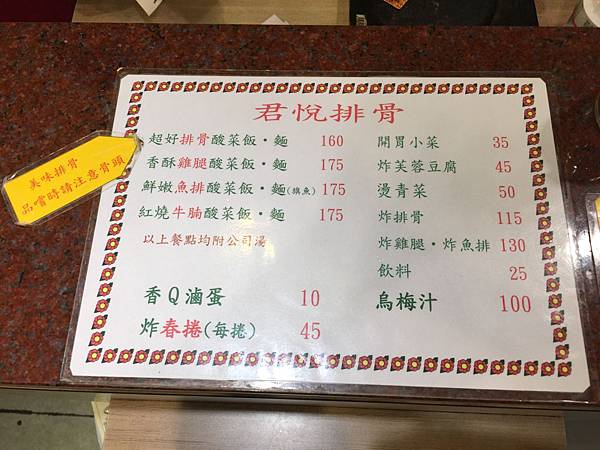 君悅排骨
超好排骨酸菜飯・麵 160
香酥雞腿酸菜飯・麵 175
鮮嫩魚排酸菜飯・麵(旗魚) 175
紅燒牛腩酸菜飯・麵 175
以上餐點均附公司湯
香Q滷蛋 10
炸春捲(每捲) 45
開胃小菜 35
炸芙蓉豆腐 45
燙青菜 50
炸排骨 115
炸雞腿・炸魚排 130
飲料 25
烏梅汁 100
美味排骨
品嚐時請注意骨頭